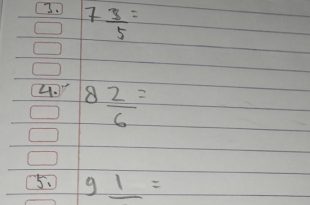 3. 7 3/5 =
4. 8 2/6 =
5. 9 1 =